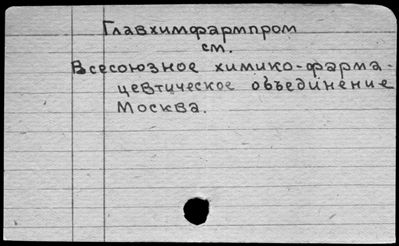 Главхимфармпром
см.
Всесоюзное химико-фарма-
цевтическое объединение
Москва.